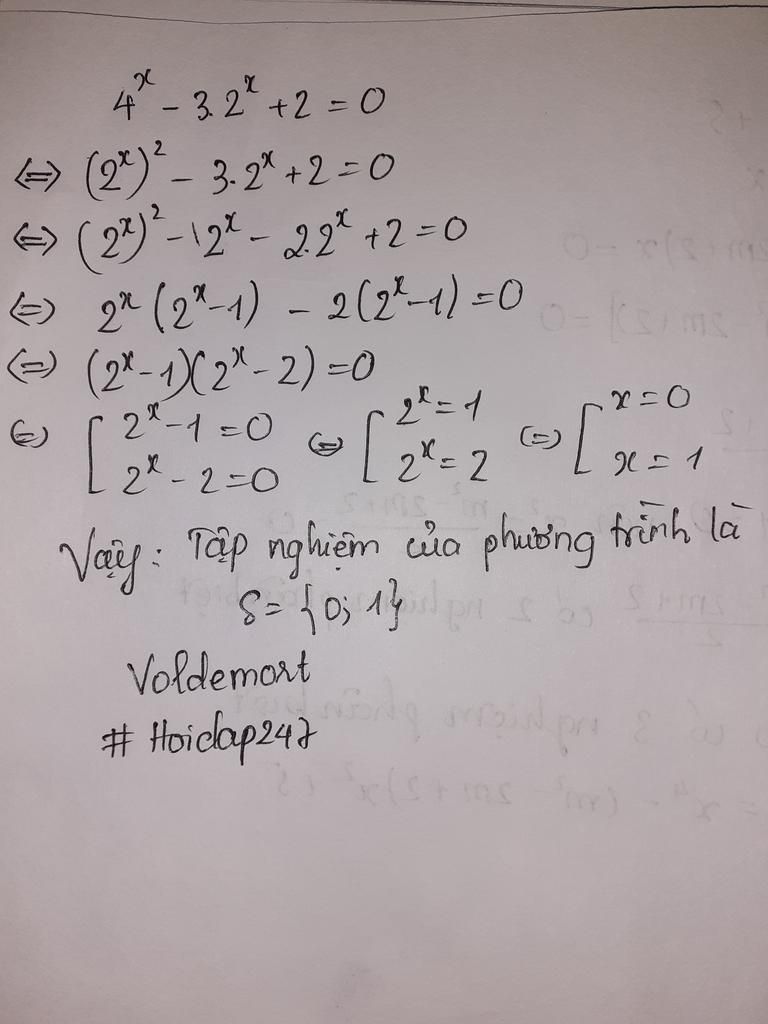 4^x - 3.2^x + 2 = 0
⇔ (2^x)^2 - 3.2^x + 2 = 0
⇔ (2^x)^2 - 12^x - 2.2^x + 2 = 0
⇔ 2^x (2^x - 1) - 2(2^x - 1) = 0
⇔ (2^x - 1)(2^x - 2) = 0
⇔ [ 2^x - 1 = 0 ⇔ [ 2^x = 1 ⇔ [ x = 0
2^x - 2 = 0 2^x = 2 x = 1
Vậy: Tập nghiệm của phương trình là
S = {0; 1}
Voldemort
# Hoidap247